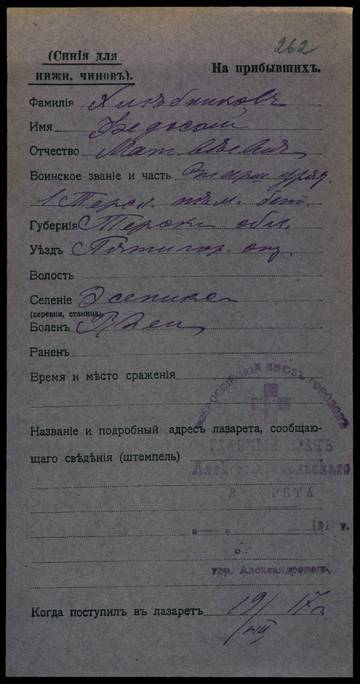 262
(Синія для
нижн. чиновъ).
На прибывшихъ.
Фамилія Хлѣбниковъ
Имя Ѳедосей
Отчество Матвѣевичъ
Воинское званіе и часть Старш. уряд.
1 Терск. пласт. бат.
Губернія Терск. обл.
Уѣздъ Пятигор. отд.
Волость
Селеніе
(деревня, станица)
Боленъ
Раненъ
Время и мѣсто сраженія
Названіе и подробный адресъ лазарета, сообщаю-
щаго свѣдѣнія (штемпель)
ВСЕРОССІЙСКІЙ СОЮЗЪ ГОРОДОВЪ
гор. Александрополь.
Когда поступилъ въ лазаретъ 19/ 17
/VII